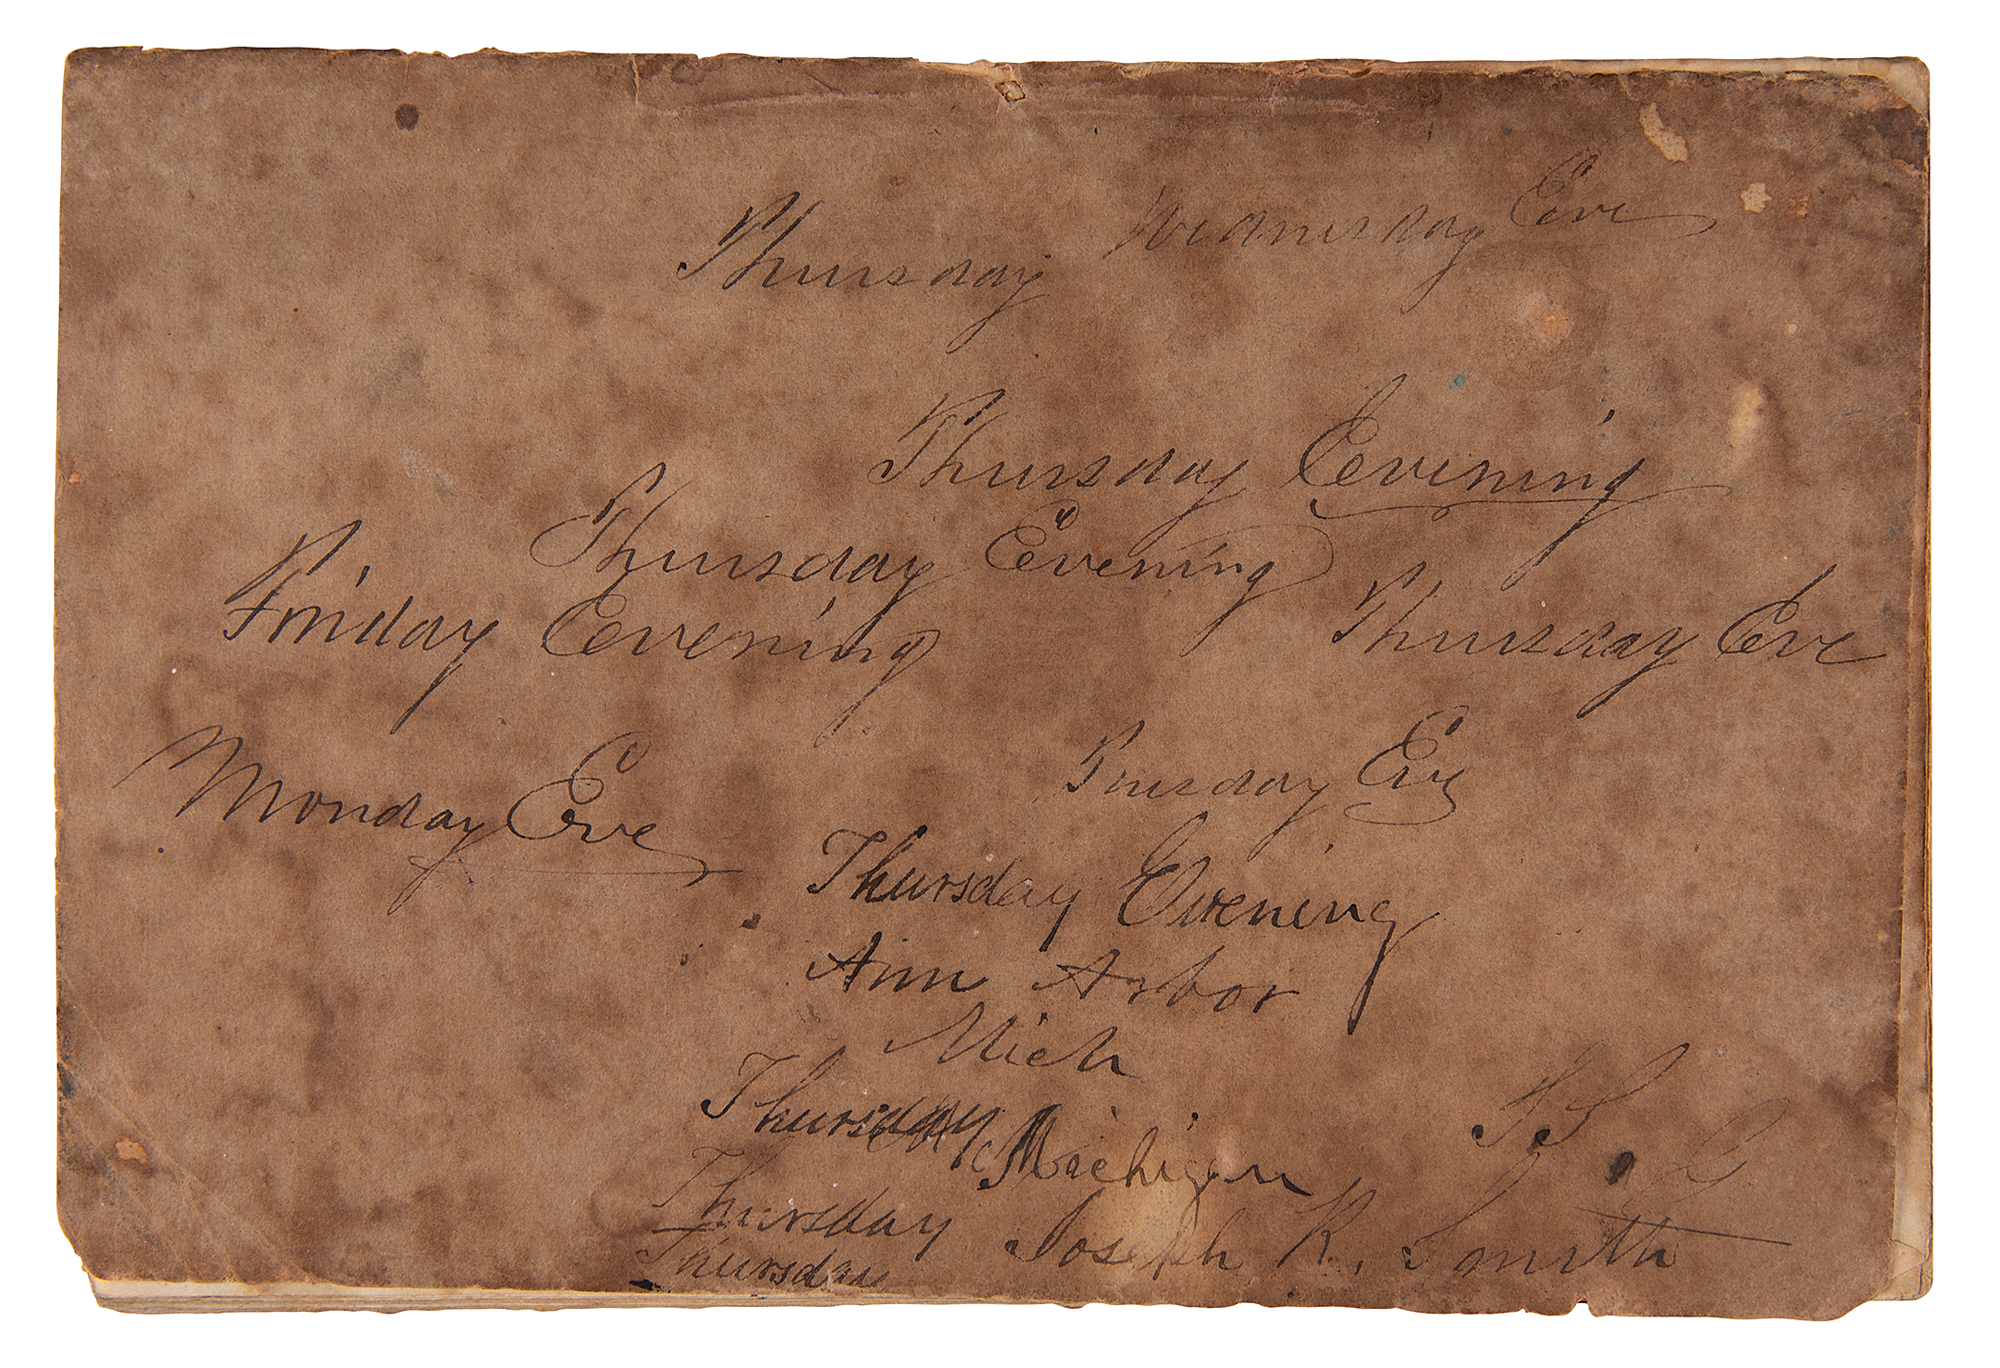 Wednesday Eve
Thursday
Thursday Evening
Thursday Evening
Friday Evening
Thursday Eve
Monday Eve
Eve
Thursday Evening
Ann Arbor
Mich
Thursday
Michigan
Thursday
Joseph R. Smith
Thursday